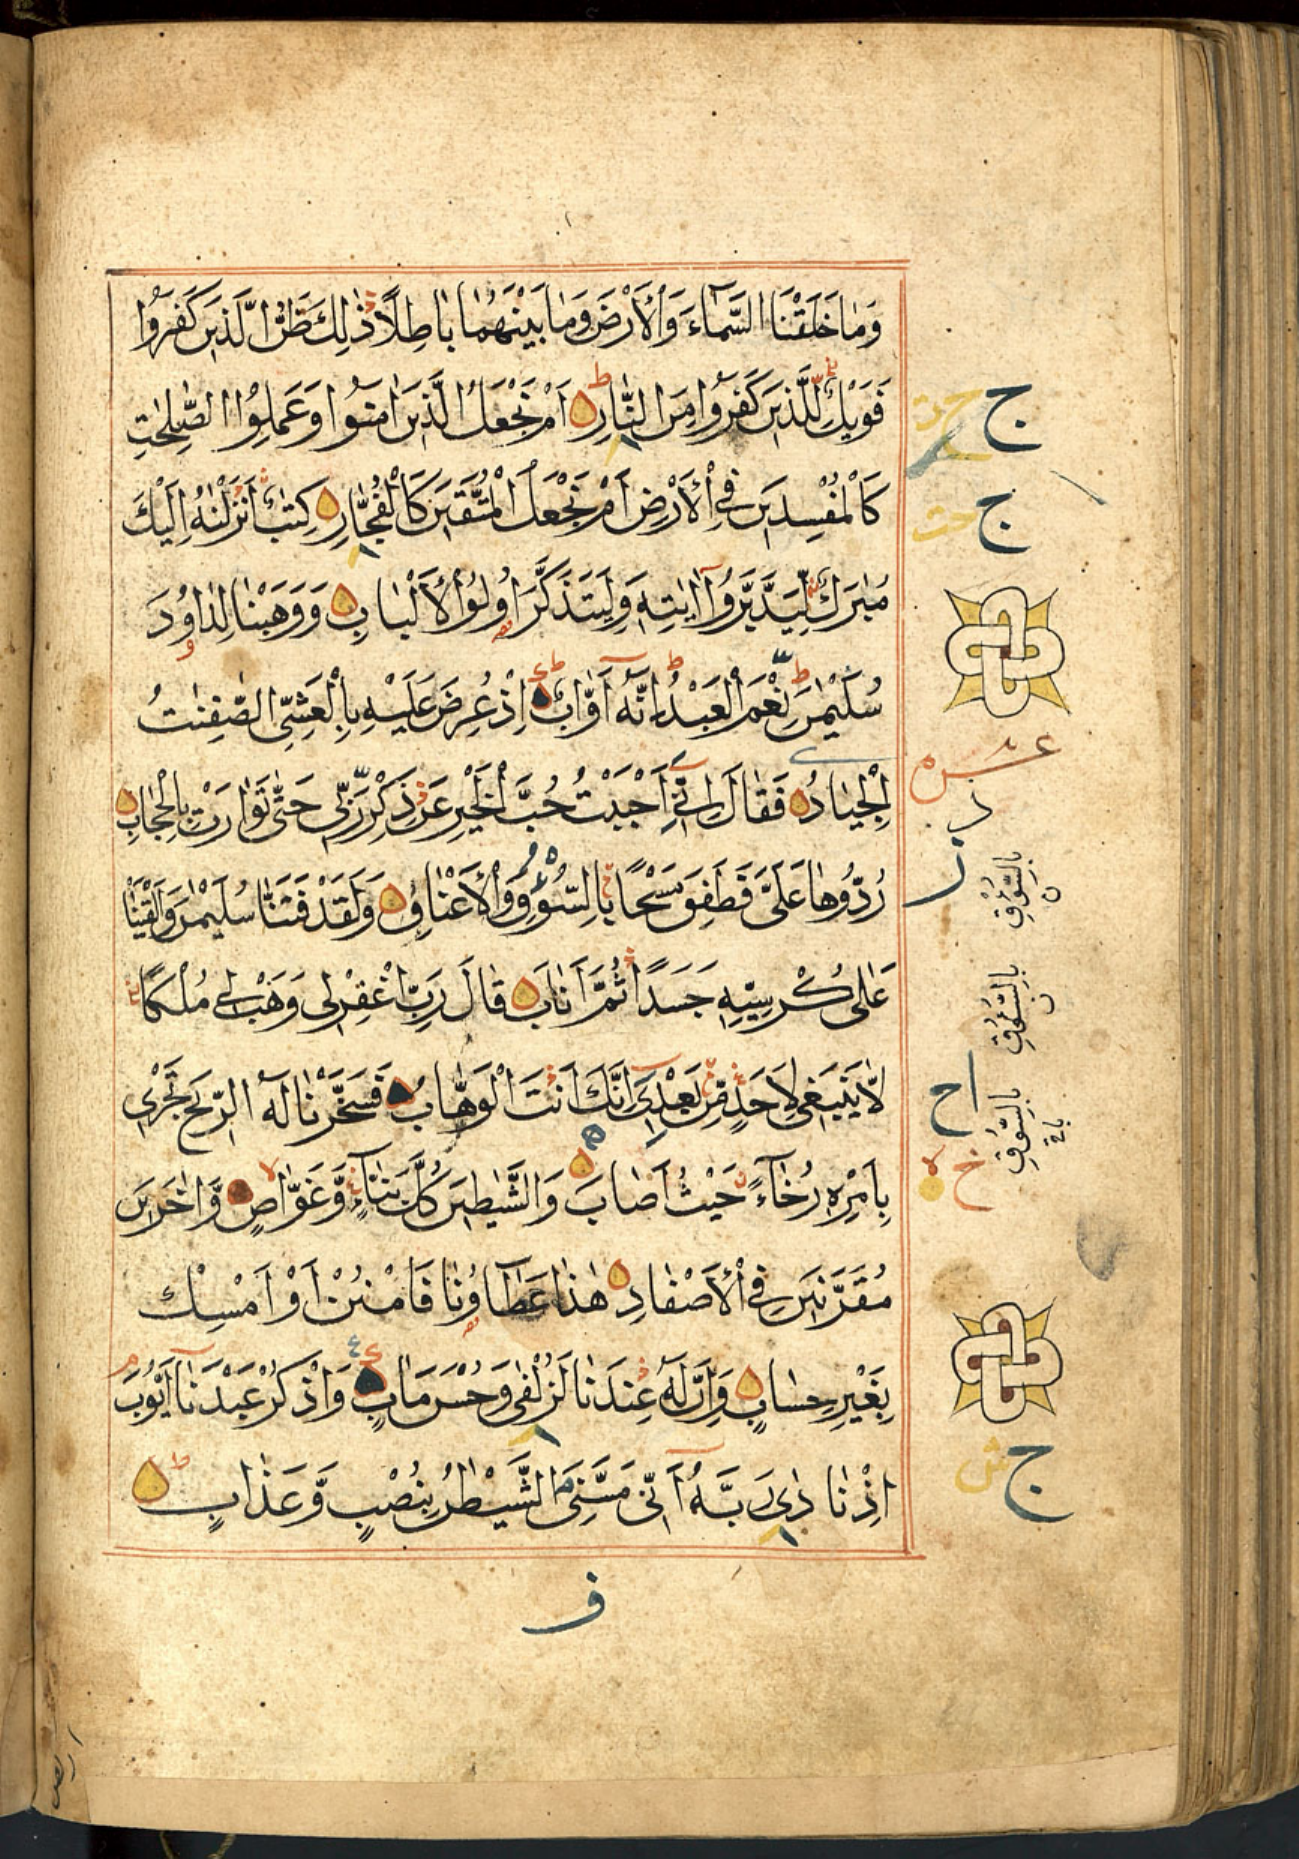 وَمَا خَلَقْنَا السَّمَاءَ وَالْأَرْضَ وَمَا بَيْنَهُمَا بَاطِلًا ذٰلِكَ ظَنُّ الَّذِينَ كَفَرُوا
فَوَيْلٌ لِلَّذِينَ كَفَرُوا مِنَ النَّارِ أَمْ نَجْعَلُ الَّذِينَ اٰمَنُوا وَعَمِلُوا الصّٰلِحٰتِ
كَالْمُفْسِدِينَ فِي الْأَرْضِ أَمْ نَجْعَلُ الْمُتَّقِينَ كَالْفُجَّارِ كِتٰبٌ أَنْزَلْنٰهُ إِلَيْكَ
مُبٰرَكٌ لِيَدَّبَّرُوا اٰيٰتِهِ وَلِيَتَذَكَّرَ أُولُوا الْأَلْبَابِ وَوَهَبْنَا لِدَاوُدَ
سُلَيْمٰنَ نِعْمَ الْعَبْدُ إِنَّهُ أَوَّابٌ إِذْ عُرِضَ عَلَيْهِ بِالْعَشِيِّ الصّٰفِنٰتُ
الْجِيَادُ فَقَالَ إِنِّي أَحْبَبْتُ حُبَّ الْخَيْرِ عَنْ ذِكْرِ رَبِّي حَتّٰى تَوَارَتْ بِالْحِجَابِ
رُدُّوهَا عَلَيَّ فَطَفِقَ مَسْحًا بِالسُّوقِ وَالْأَعْنَاقِ وَلَقَدْ فَتَنَّا سُلَيْمٰنَ وَأَلْقَيْنَا
عَلٰى كُرْسِيِّهِ جَسَدًا ثُمَّ أَنَابَ قَالَ رَبِّ اغْفِرْ لِي وَهَبْ لِي مُلْكًا
لَّا يَنْبَغِي لِأَحَدٍ مِّنْ بَعْدِي إِنَّكَ أَنْتَ الْوَهَّابُ فَسَخَّرْنَا لَهُ الرِّيحَ تَجْرِي
بِأَمْرِهِ رُخَاءً حَيْثُ أَصَابَ وَالشَّيٰطِينَ كُلَّ بَنَّاءٍ وَّغَوَّاصٍ وَّاٰخَرِينَ
مُقَرَّنِينَ فِي الْأَصْفَادِ هٰذَا عَطَاؤُنَا فَامْنُنْ أَوْ أَمْسِكْ
بِغَيْرِ حِسَابٍ وَإِنَّ لَهُ عِنْدَنَا لَزُلْفٰى وَحُسْنَ مَاٰبٍ وَاذْكُرْ عَبْدَنَا أَيُّوبَ
إِذْ نَادٰى رَبَّهُ أَنِّي مَسَّنِيَ الشَّيْطٰنُ بِنُصْبٍ وَّعَذَابٍ
ج
ج
بِالسُّؤْقِ
بِالسُّؤُقِ
بِالسُّوقِ
ج
ف